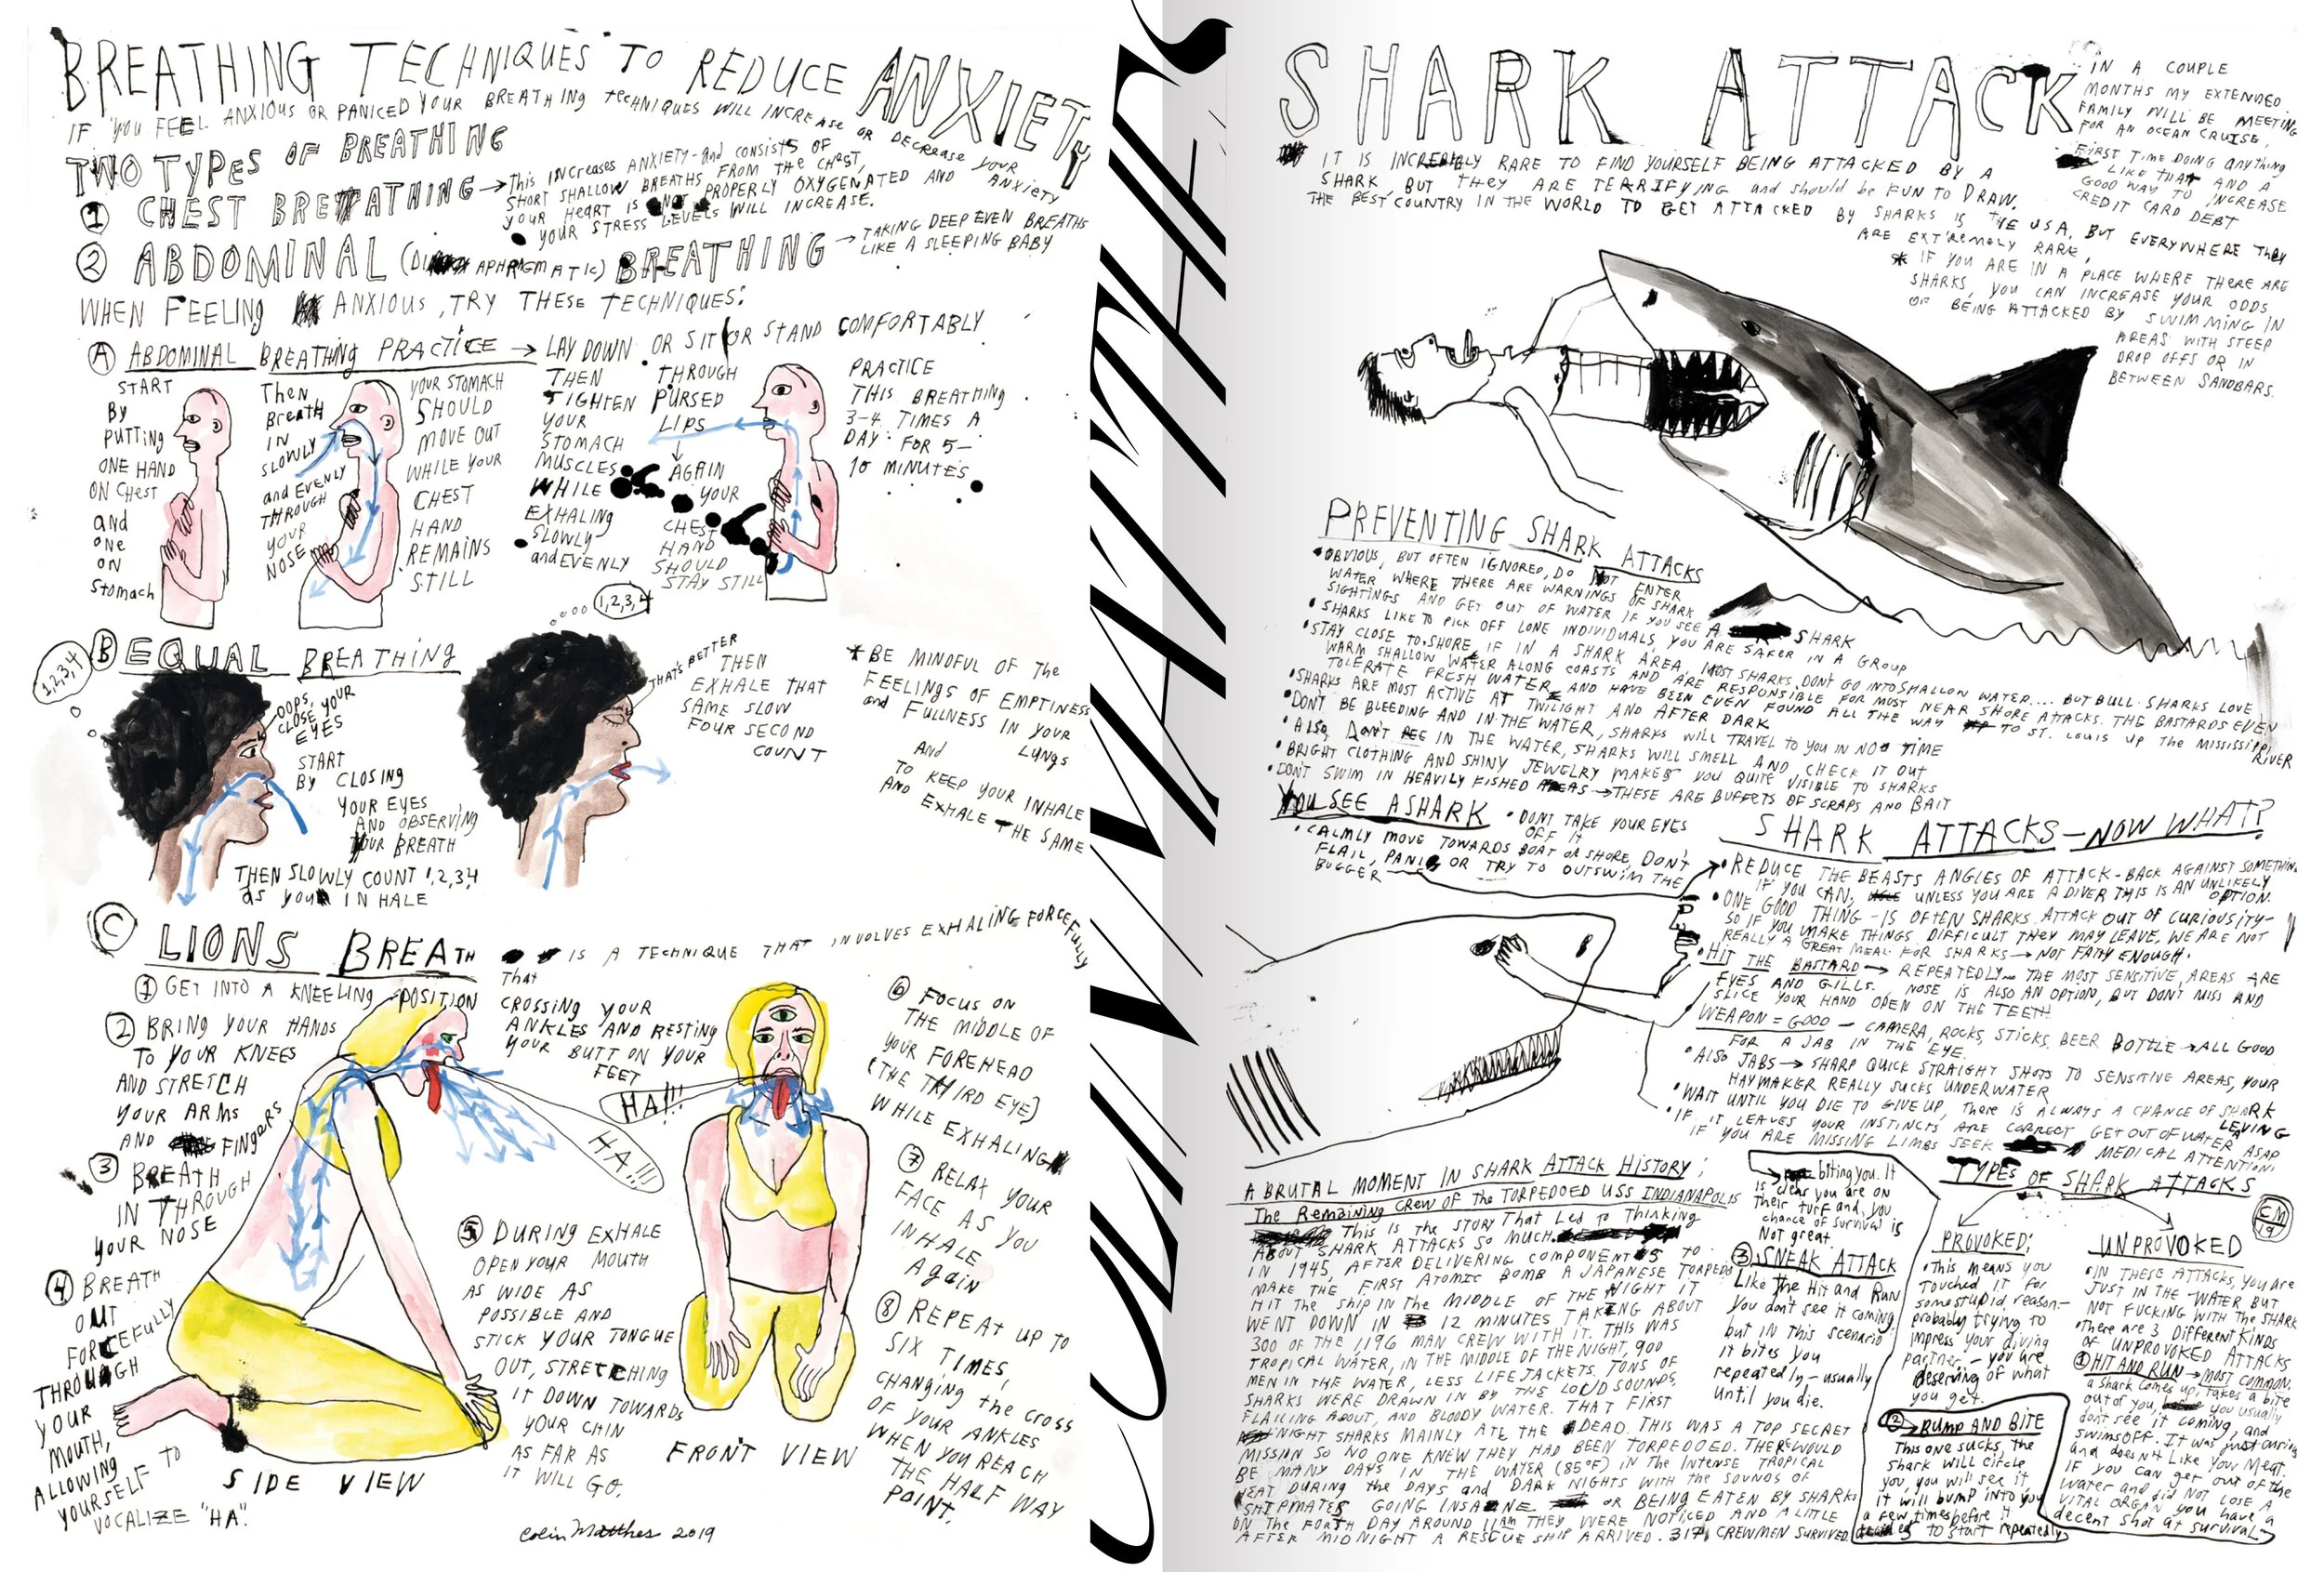 BREATHING TECHNIQUES TO REDUCE ANXIETY
IF YOU FEEL ANXIOUS OR PANICED YOUR BREATHING TECHNIQUES WILL INCREASE OR DECREASE YOUR ANXIETY
TWO TYPES OF BREATHING
1 CHEST BREATHING → This INCREASES ANXIETY-and CONSISTS OF
SHORT SHALLOW BREATHS FROM THE CHEST,
YOUR HEART IS NOT PROPERLY OXYGENATED AND
YOUR STRESS LEVELS WILL INCREASE.
2 ABDOMINAL (DIAPHRAGMATIC) BREATHING → TAKING DEEP EVEN BREATHS
LIKE A SLEEPING BABY
WHEN FEELING ANXIOUS, TRY THESE TECHNIQUES:
A ABDOMINAL BREATHING PRACTICE → LAY DOWN OR SIT OR STAND COMFORTABLY
START
BY
PUTTING
ONE HAND
ON CHEST
and
one
on
stomach
Then
BREATH
IN
SLOWLY
and EVENLY
THROUGH
YOUR
NOSE
YOUR STOMACH
SHOULD
MOVE OUT
WHILE YOUR
CHEST
HAND
REMAINS
STILL
THEN
TIGHTEN
YOUR
STOMACH
MUSCLES
WHILE
EXHALING
SLOWLY
and EVENLY
THROUGH
PURSED
LIPS
AGAIN
YOUR
CHEST
HAND
SHOULD
STAY STILL
PRACTICE
THIS BREATHING
3-4 TIMES A
DAY FOR 5-
10 MINUTES
B EQUAL BREATHING
1,2,3,4
OOPS,
CLOSE YOUR
EYES
START
BY CLOSING
YOUR EYES
AND OBSERVING
YOUR BREATH
THEN SLOWLY COUNT 1,2,3,4
as you INHALE
1,2,3,4
THAT'S BETTER
THEN
EXHALE THAT
SAME SLOW
FOUR SECOND
COUNT
* BE MINDFUL OF The
FEELINGS OF EMPTINESS
and FULLNESS IN YOUR
LUNGS
And
TO KEEP YOUR INHALE
AND EXHALE THE SAME
C LIONS BREATH IS A TECHNIQUE THAT INVOLVES EXHALING FORCEFULLY
1 GET INTO A KNEELING POSITION
That
CROSSING YOUR
ANKLES AND RESTING
YOUR BUTT ON YOUR
FEET
2 BRING YOUR HANDS
TO YOUR KNEES
AND STRETCH
YOUR ARMS
AND FINGERS
3 BREATH
IN THROUGH
YOUR NOSE
4 BREATH
OUT
FORCEFULLY
THROUGH
YOUR
MOUTH,
ALLOWING
YOURSELF TO
VOCALIZE "HA".
HA!!!
HA!!!
5 DURING EXHALE
OPEN YOUR MOUTH
AS WIDE AS
POSSIBLE AND
STICK YOUR TONGUE
OUT, STRETCHING
IT DOWN TOWARDS
YOUR CHIN
AS FAR AS
IT WILL GO.
6 FOCUS ON
THE MIDDLE OF
YOUR FOREHEAD
(THE THIRD EYE)
WHILE EXHALING
7 RELAX YOUR
FACE AS YOU
INHALE
Again
8 REPEAT UP TO
SIX TIMES,
CHANGING the CROSS
OF YOUR ANKLES
WHEN YOU REACH
THE HALF WAY
POINT.
SIDE VIEW
FRONT VIEW
Colin Matthes 2019
COLIN MATTHES
SHARK ATTACK
IN A COUPLE
MONTHS MY EXTENDED
FAMILY WILL BE MEETING
FOR AN OCEAN CRUISE,
FIRST TIME DOING anything
LIKE THAT AND A
GOOD WAY TO INCREASE
CREDIT CARD DEBT
IT IS INCREDIBLY RARE TO FIND YOURSELF BEING ATTACKED BY A
SHARK, BUT THEY ARE TERRIFYING and should be FUN TO DRAW.
THE BEST COUNTRY IN THE WORLD TO GET ATTACKED BY SHARKS IS THE USA, BUT EVERYWHERE THEY
ARE EXTREMELY RARE,
* IF YOU ARE IN A PLACE WHERE THERE ARE
SHARKS, YOU CAN INCREASE YOUR ODDS
OF BEING ATTACKED BY SWIMMING IN
AREAS WITH STEEP
DROP OFFS OR IN
BETWEEN SANDBARS.
PREVENTING SHARK ATTACKS
• OBVIOUS, BUT OFTEN IGNORED, DO NOT ENTER
WATER WHERE THERE ARE WARNINGS OF SHARK
SIGHTINGS AND GET OUT OF WATER IF YOU SEE A SHARK
• SHARKS LIKE TO PICK OFF LONE INDIVIDUALS, YOU ARE SAFER IN A GROUP
• STAY CLOSE TO SHORE IF IN A SHARK AREA, MOST SHARKS DON'T GO INTO SHALLOW WATER.... BUT BULL SHARKS LOVE
WARM SHALLOW WATER ALONG COASTS AND ARE RESPONSIBLE FOR MOST NEAR SHORE ATTACKS. THE BASTARDS EVEN
TOLERATE FRESH WATER AND HAVE BEEN EVEN FOUND ALL THE WAY TO ST. LOUIS UP THE MISSISSIPPI
RIVER
• SHARKS ARE MOST ACTIVE AT TWILIGHT AND AFTER DARK
• DON'T BE BLEEDING AND IN THE WATER, SHARKS WILL TRAVEL TO YOU IN NO TIME
• Also, Don't PEE IN THE WATER, SHARKS WILL SMELL AND CHECK IT OUT
• BRIGHT CLOTHING AND SHINY JEWELRY MAKES YOU QUITE VISIBLE TO SHARKS
• DON'T SWIM IN HEAVILY FISHED AREAS → THESE ARE BUFFETS OF SCRAPS AND BAIT
YOU SEE A SHARK
• DON'T TAKE YOUR EYES
OFF IT
• CALMLY MOVE TOWARDS BOAT OR SHORE, DON'T
FLAIL, PANIC OR TRY TO OUTSWIM THE
BUGGER
SHARK ATTACKS—NOW WHAT?
• REDUCE THE BEASTS ANGLES OF ATTACK-BACK AGAINST SOMETHING
IF YOU CAN, UNLESS YOU ARE A DIVER THIS IS AN UNLIKELY
OPTION.
• ONE GOOD THING - IS OFTEN SHARKS ATTACK OUT OF CURIOUSITY-
SO IF YOU MAKE THINGS DIFFICULT THEY MAY LEAVE, WE ARE NOT
REALLY A GREAT MEAL FOR SHARKS → NOT FATTY ENOUGH.
• HIT THE BASTARD → REPEATEDLY... THE MOST SENSITIVE AREAS ARE
EYES AND GILLS. NOSE IS ALSO AN OPTION, BUT DON'T MISS AND
SLICE YOUR HAND OPEN ON THE TEETH
WEAPON = GOOD — CAMERA, ROCKS, STICKS, BEER BOTTLE → ALL GOOD
FOR A JAB IN THE EYE.
• ALSO JABS → SHARP QUICK STRAIGHT SHOTS TO SENSITIVE AREAS, YOUR
HAYMAKER REALLY SUCKS UNDERWATER
• WAIT UNTIL YOU DIE TO GIVE UP, There IS ALWAYS A CHANCE OF SHARK
LEVING
• IF IT LEAVES YOUR INSTINCTS ARE CORRECT GET OUT OF WATER ASAP
IF YOU ARE MISSING LIMBS SEEK MEDICAL ATTENTION
A BRUTAL MOMENT IN SHARK ATTACK HISTORY;
The Remaining CREW OF THE TORPEDOED USS INDIANAPOLIS
This IS the STORY That Led To Thinking
ABOUT SHARK ATTACKS SO MUCH.
IN 1945, AFTER DELIVERING COMPONENTS TO
MAKE THE FIRST ATOMIC BOMB A JAPANESE TORPEDO
HIT THE SHIP IN THE MIDDLE OF THE NIGHT IT
WENT DOWN IN 12 MINUTES TAKING ABOUT
300 OF THE 1,196 MAN CREW WITH IT. THIS WAS
TROPICAL WATER, IN THE MIDDLE OF THE NIGHT, 900
MEN IN THE WATER, LESS LIFE JACKETS. TONS OF
SHARKS WERE DRAWN IN BY THE LOUD SOUNDS,
FLAILING ABOUT, AND BLOODY WATER. THAT FIRST
NIGHT SHARKS MAINLY ATE THE DEAD. THIS WAS A TOP SECRET
MISSION SO NO ONE KNEW THEY HAD BEEN TORPEDOED. THERE WOULD
BE MANY DAYS IN THE WATER (85°F) IN THE INTENSE TROPICAL
HEAT DURING the DAYS and DARK NIGHTS WITH the SOUNDS OF
SHIPMATES GOING INSANE OR BEING EATEN BY SHARKS
ON THE FORTH DAY AROUND 11AM THEY WERE NOTICED AND A LITTLE
AFTER MIDNIGHT A RESCUE SHIP ARRIVED. 317 CREWMEN SURVIVED.
TYPES OF SHARK ATTACKS
CM
19
PROVOKED:
• This means you
Touched it for
some stupid reason—
probably trying to
impress your diving
partner — you are
deserving of what
you get.
UNPROVOKED
• IN THESE ATTACKS, YOU ARE
JUST IN THE WATER BUT
NOT FUCKING WITH THE SHARK
• There are 3 Different KINDS
OF UNPROVOKED ATTACKS
1 HIT AND RUN → MOST COMMON.
a Shark comes up, Takes a bite
out of you, you usually
don't see it coming, and
swims off. It was just curious
and doesn't Like your Meat.
IF you can get out of the
water and did NOT LOSE A
VITAL ORGAN you have a
decent shot at survival
2 BUMP AND BITE
This one sucks, the
shark will circle
you, you will see it
it will bump into you
a few times before it
decides to start repeatedly
→ biting you. It
is clear you are on
Their turf and you
chance of survival is
Not great.
3 SNEAK ATTACK
Like The Hit and Run
You don't see it coming
but in this scenario
it bites you
repeatedly-usually
until you die.